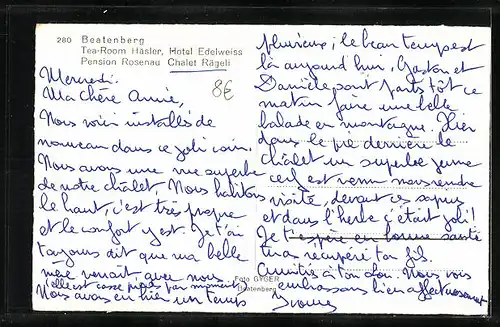 280 Beatenberg
Tea-Room Häsler, Hotel Edelweiss
Pension Rosenau Chalet Rägeli
8€
Mercredi.
Ma Chère Annie,
Nous voici installés de
nouveau dans ce joli coin.
Nous avons une vue superbe
de notre chalet. Nous habitons
le haut, c'est très propre
et le confort y est. Je t'ai
toujours dit que ma belle
mère venait avec nous.
elle est casse pieds par moments
Nous avons eu hier un temps
pluvieux ; le beau temps est
là aujourd'hui, Gaston et
Danièle sont partis tôt ce
matin faire une belle
balade en montagne. Hier
dans le pré derrière le
châlet un superbe jeune
cerf est venu nous rendre
visite, devant ces sapins
et dans l'herbe c'était joli !
Je t'espère en bonne santé
tu as récupéré ton fils.
Amitiés à ton Nous vous
embrassons bien affectueusement
Foto GYGER
Beatenberg